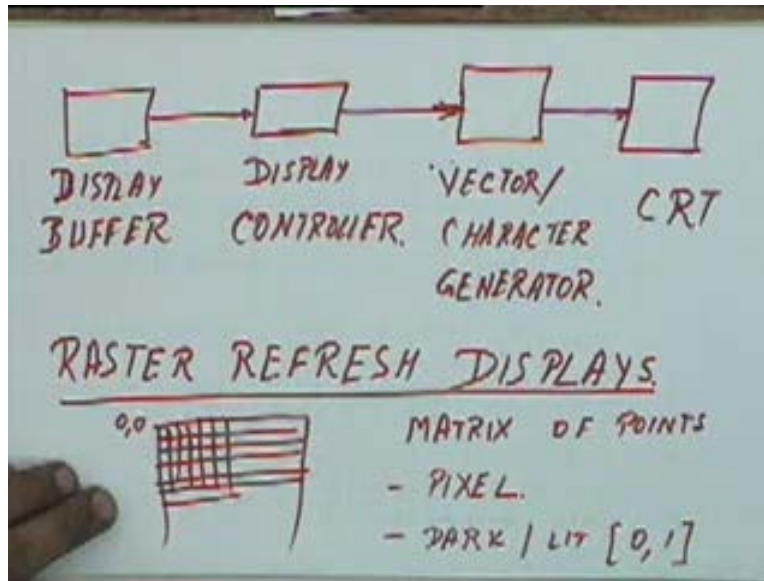 DISPLAY BUFFER
DISPLAY CONTROLLER.
VECTOR/
CHARACTER
GENERATOR.
CRT
RASTER REFRESH DISPLAYS.
0,0
MATRIX OF POINTS
- PIXEL.
- DARK / LIT [0,1]